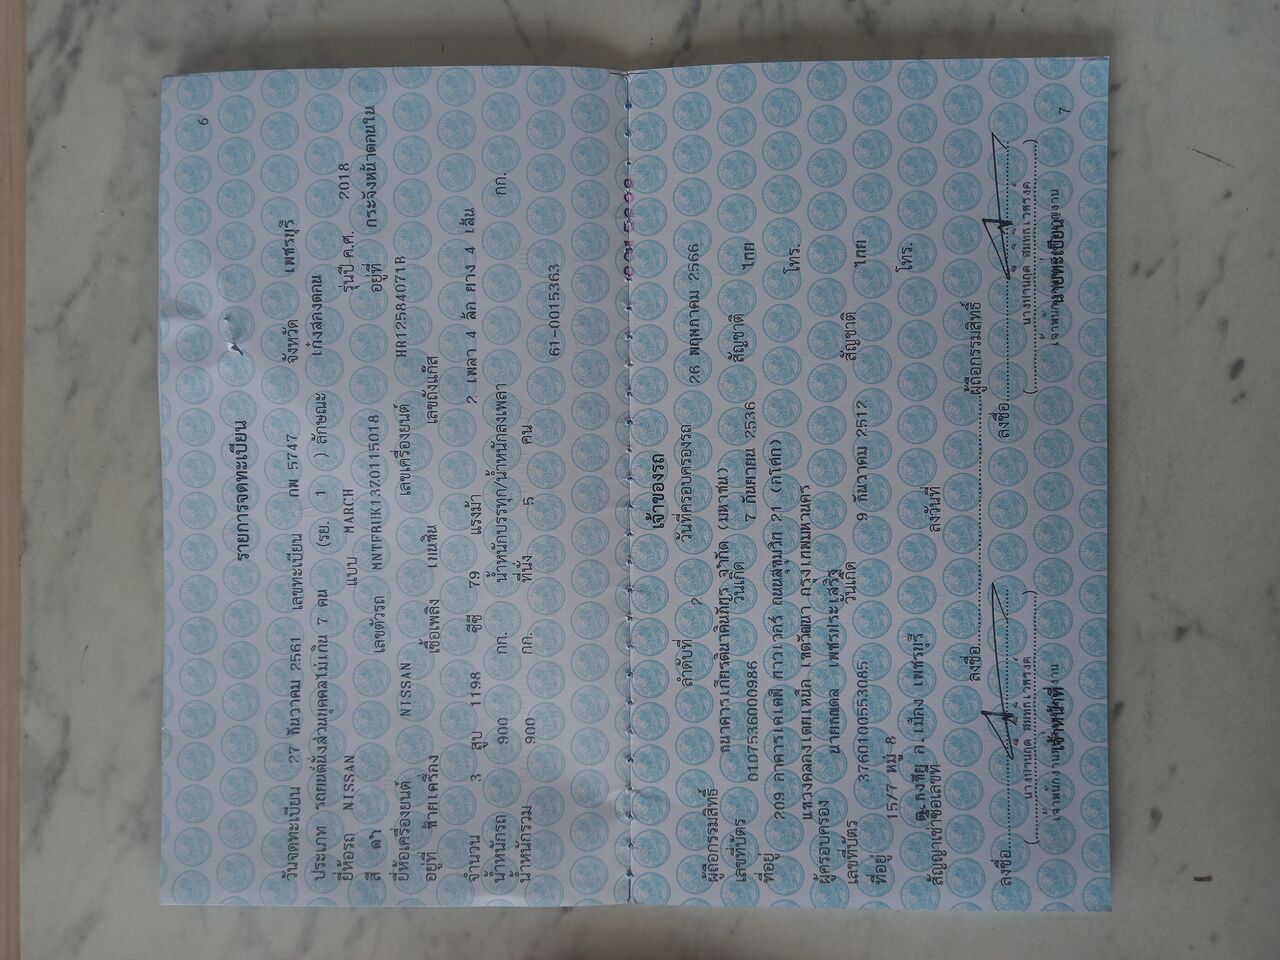 6
รายการจดทะเบียน
วันจดทะเบียน 27 ธันวาคม 2561 เลขทะเบียน กพ 5747 จังหวัด เพชรบุรี
ประเภท รถยนต์นั่งส่วนบุคคลไม่เกิน 7 คน (รย. 1 ) ลักษณะ เก๋งสองตอน
ยี่ห้อรถ NISSAN แบบ MARCH รุ่นปี ค.ศ. 2018
สี ดำ เลขตัวรถ MNTFRUK13Z0115018 อยู่ที่ กระจังหน้าตอนใน
ยี่ห้อเครื่องยนต์ NISSAN เลขเครื่องยนต์ HR12584071B
อยู่ที่ ท้ายเครื่อง เชื้อเพลิง เบนซิน เลขถังแก๊ส
จำนวน 3 สูบ 1198 ซีซี 79 แรงม้า 2 เพลา 4 ล้อ ยาง 4 เส้น
น้ำหนักรถ 900 กก. น้ำหนักบรรทุก/น้ำหนักลงเพลา กก.
น้ำหนักรวม 900 กก. ที่นั่ง 5 คน 61-0015363
เจ้าของรถ
ลำดับที่ 2 วันที่ครอบครองรถ 26 พฤษภาคม 2566
ผู้ถือกรรมสิทธิ์ ธนาคารเกียรตินาคินภัทร จำกัด (มหาชน)
เลขที่บัตร 0107536000986 วันเกิด 7 กันยายน 2536 สัญชาติ ไทย
ที่อยู่ 209 อาคารเคเคพี ทาวเวอร์ ถนนสุขุมวิท 21 (อโศก) โทร.
แขวงคลองเตยเหนือ เขตวัฒนา กรุงเทพมหานคร
ผู้ครอบครอง เพชรประเสริฐ
เลขที่บัตร 3760100553085 วันเกิด 9 ธันวาคม 2512 สัญชาติ ไทย
ที่อยู่ 15/7 หมู่ 8 โทร.
อ.เมือง เพชรบุรี
สัญญาเช่าซื้อเลขที่ ลงวันที่
ลงชื่อ ผู้ถือกรรมสิทธิ์
ลงชื่อ ลงชื่อ
เจ้าหน้าที่ นายทะเบียน
7